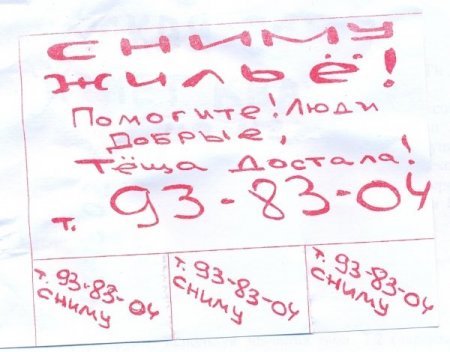 СНИМУ
ЖИЛЬЁ!
Помогите! Люди
Добрые,
Тёща Достала!
т. 93-83-04
т. 93-83-04
СНИМУ
т. 93-83-04
СНИМУ
т. 93-83-04
СНИМУ